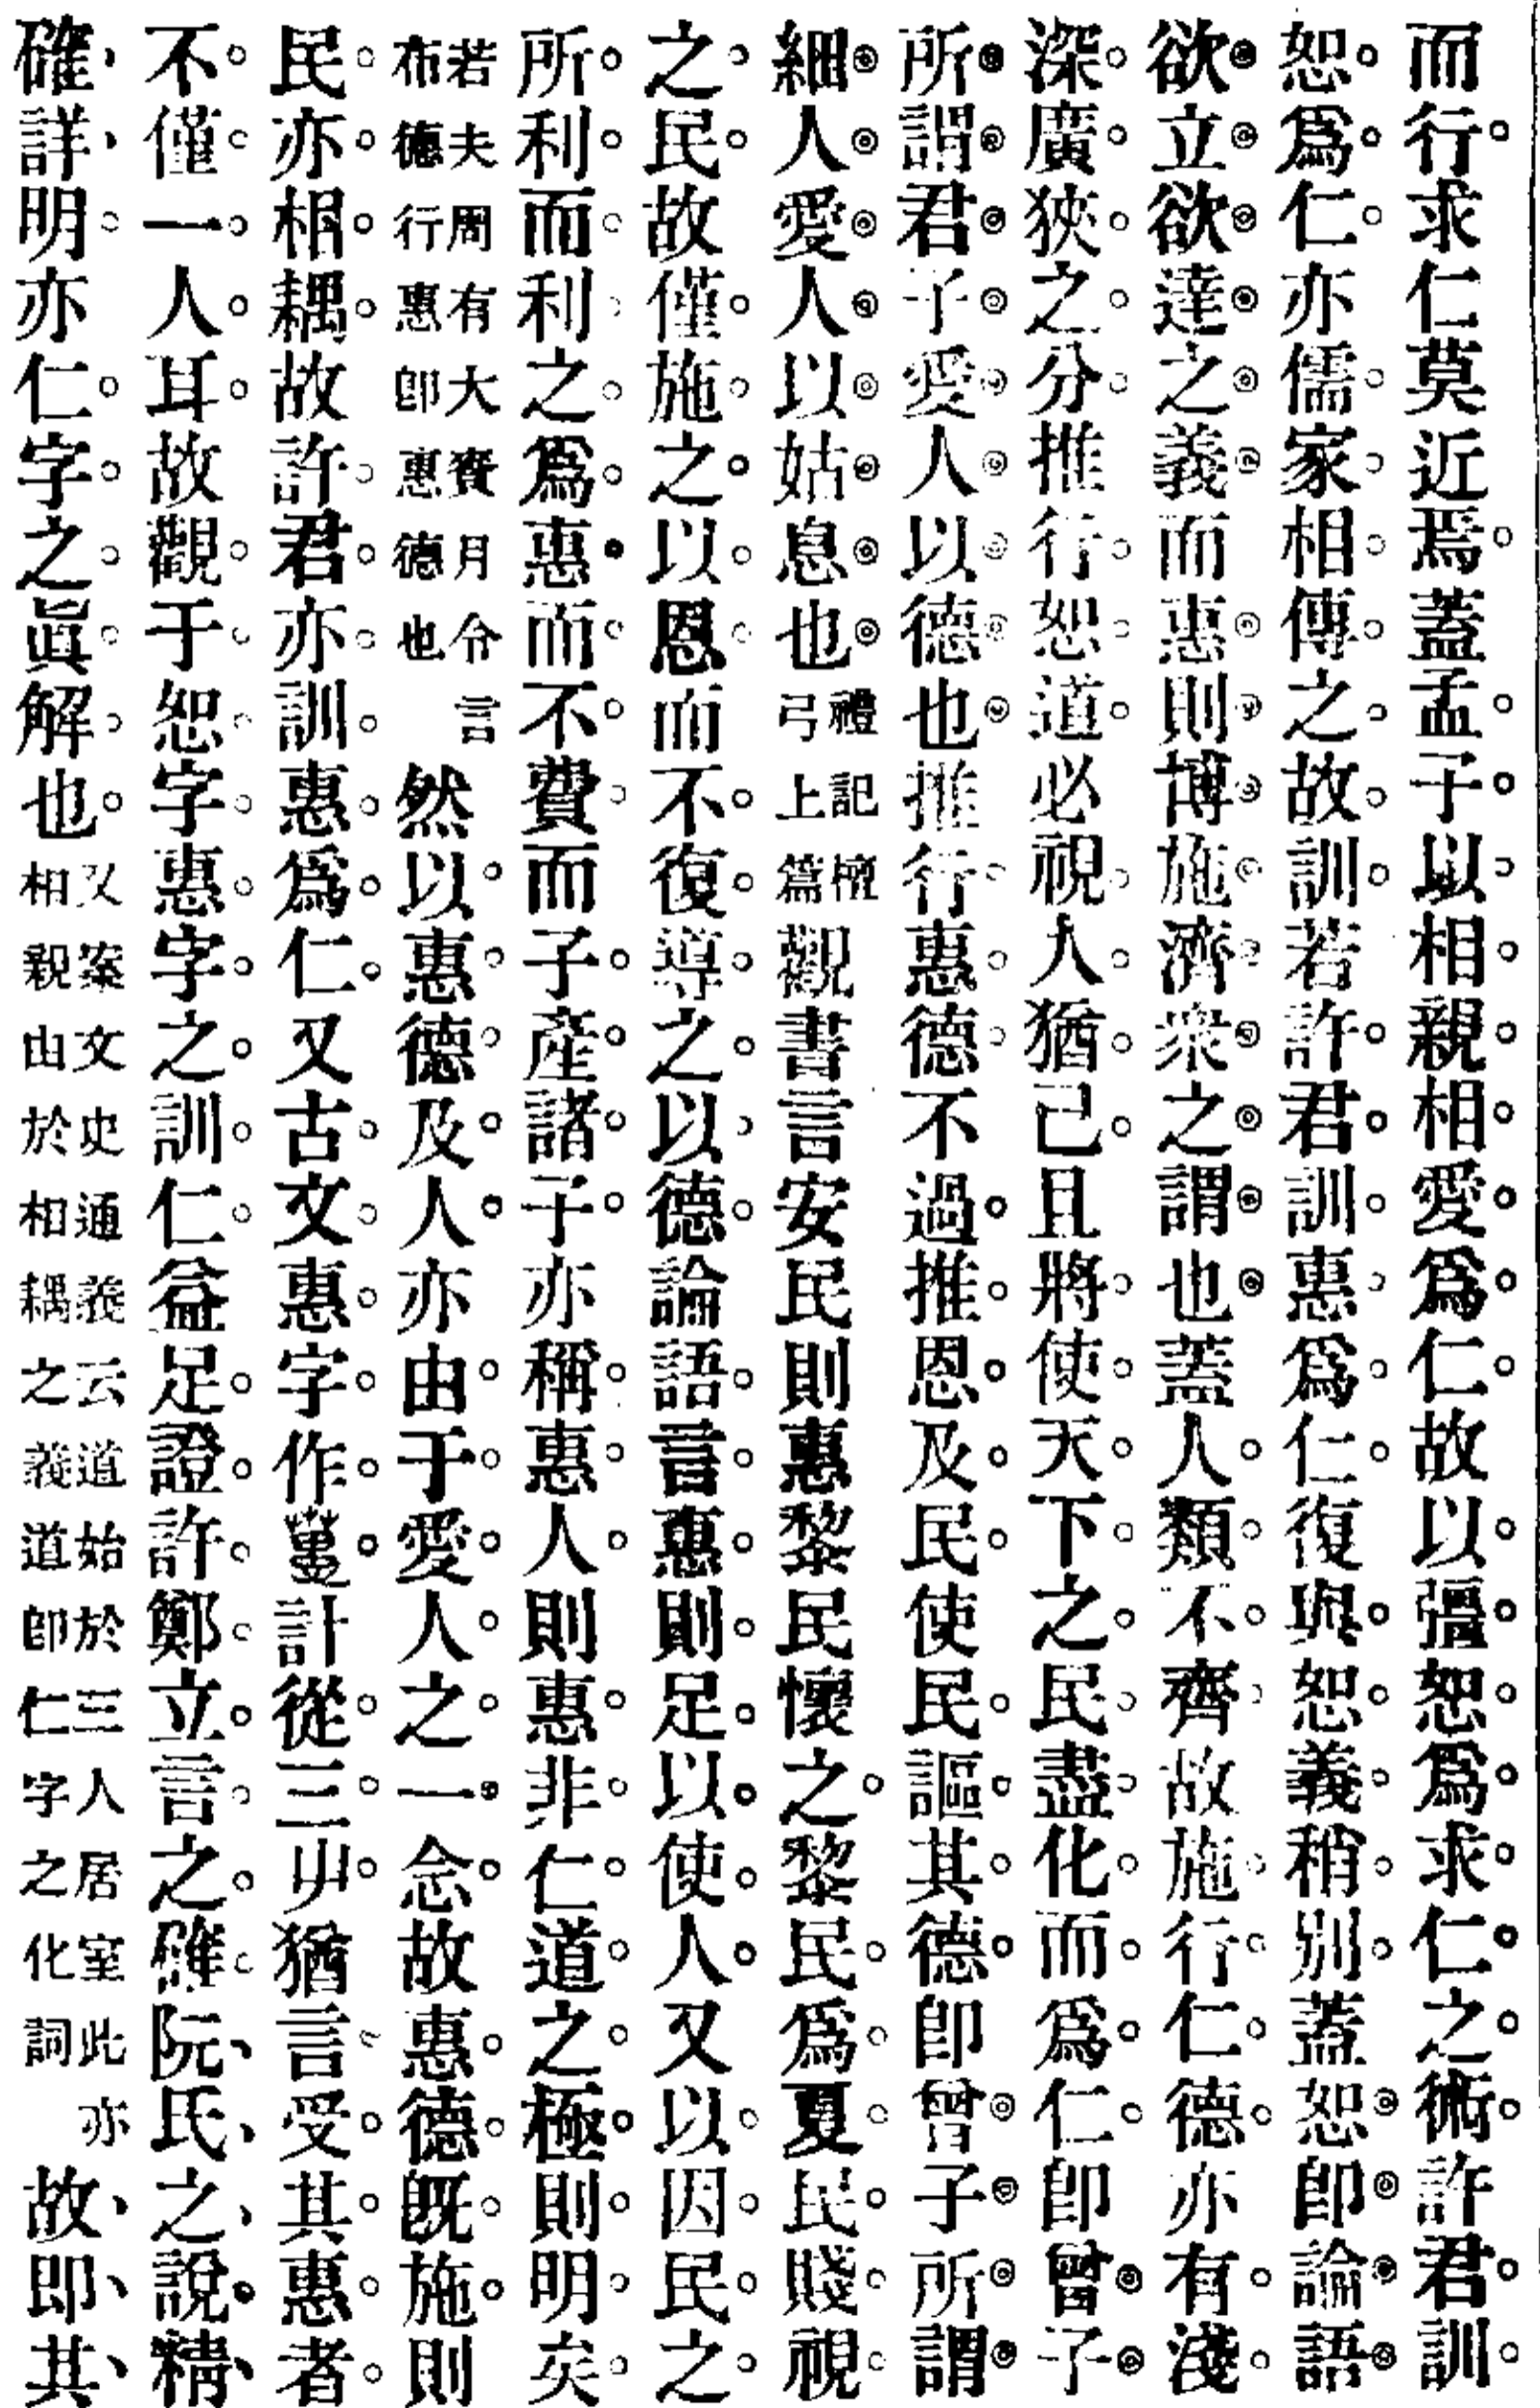 而行求仁莫近焉蓋孟子以相親相愛爲仁故以彊恕爲求仁之術許君訓
恕爲仁亦儒家相傳之故訓若許君訓惠爲仁復與恕義稍別蓋恕卽論語
欲立欲達之義而惠則博施濟衆之謂也蓋人類不齊故施行仁德亦有淺
深廣狹之分推行恕道必視人猶己且將使天下之民盡化而爲仁卽曾子
所謂君子愛人以德也推行惠德不過推恩及民使民謳其德卽曾子所謂
細人愛人以姑息也禮記檀弓上篇觀書言安民則惠黎民懷之黎民爲夏民賤視
之民故僅施之以恩而不復導之以德論語言惠則足以使人又以因民之
所利而利之爲惠而不費而子產諸子亦稱惠人則惠非仁道之極則明矣
若夫周有大賚月令言布德行惠卽惠德也然以惠德及人亦由于愛人之一念故惠德旣施則
民亦相耦故許君亦訓惠爲仁又古文惠字作𢤲計從三屮猶言受其惠者
不僅一人耳故觀于恕字惠字之訓仁益足證許鄭立言之確阮氏之說精
確詳明亦仁字之眞解也又案文史通義云道始於三人居室此亦相親由於相耦之義道卽仁字之化詞故卽其